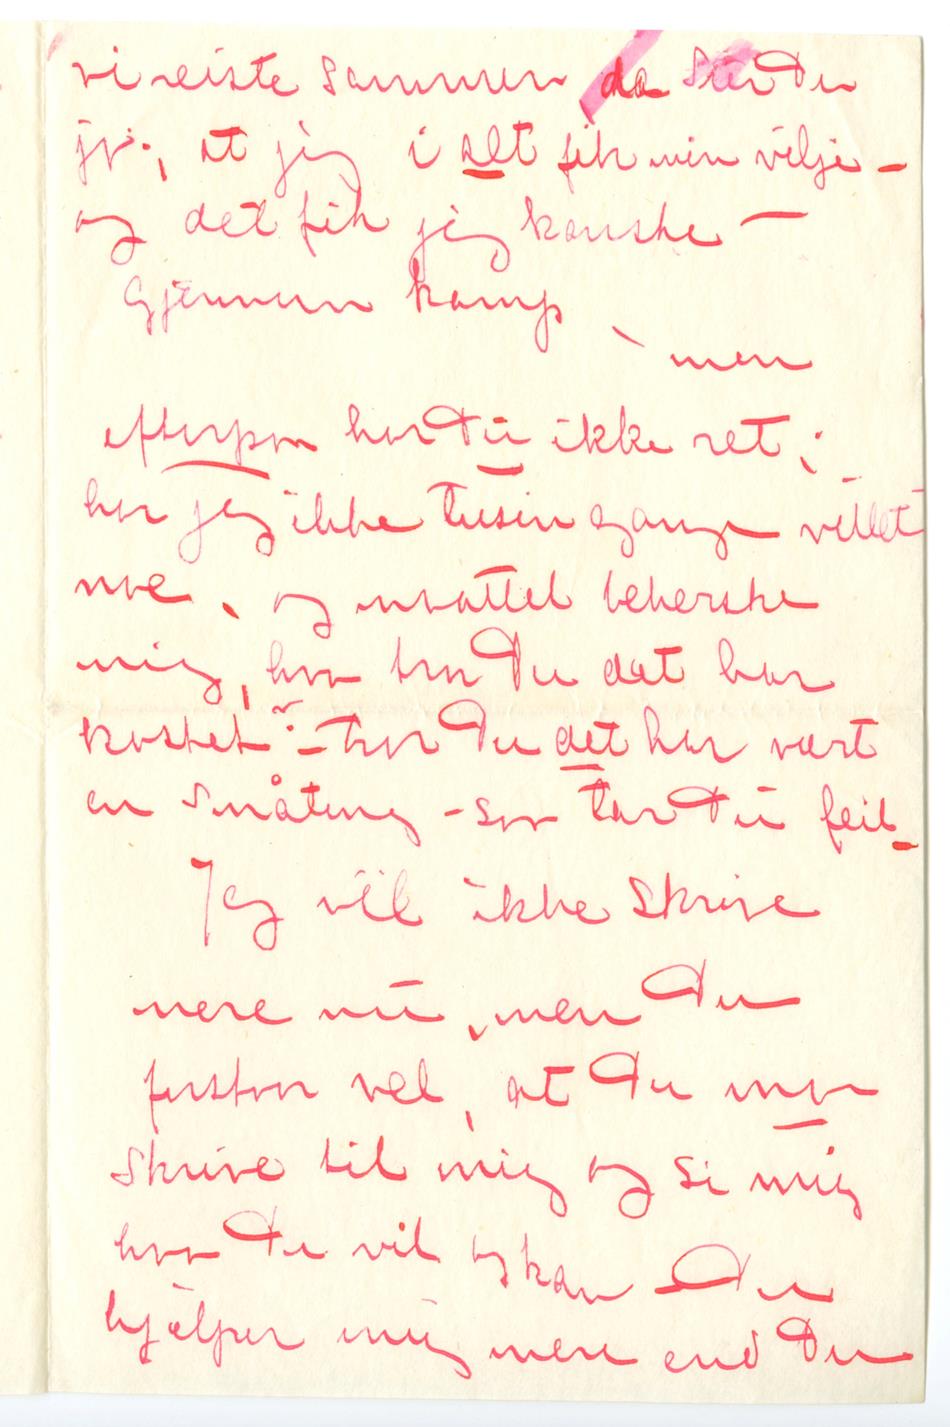 vi reiste sammen da sier Du
jo; at jeg i alt fik min vilje –
og det fik jeg kanske –
Gjennem kamp
, men
efterpaa har Du ikke ret;
har jeg ikke tusin gange villet
noe, og maattet beherske
mig, hva tror Du det har
kostet – tror Du det har vært
en småting – saa tar Du feil –
Jeg vil ikke skrive
mere nu, men Du
forstaar vel, at Du maa
skrive til mig og si mig
hva Du vil og kan Du
hjælper mig mere end Du